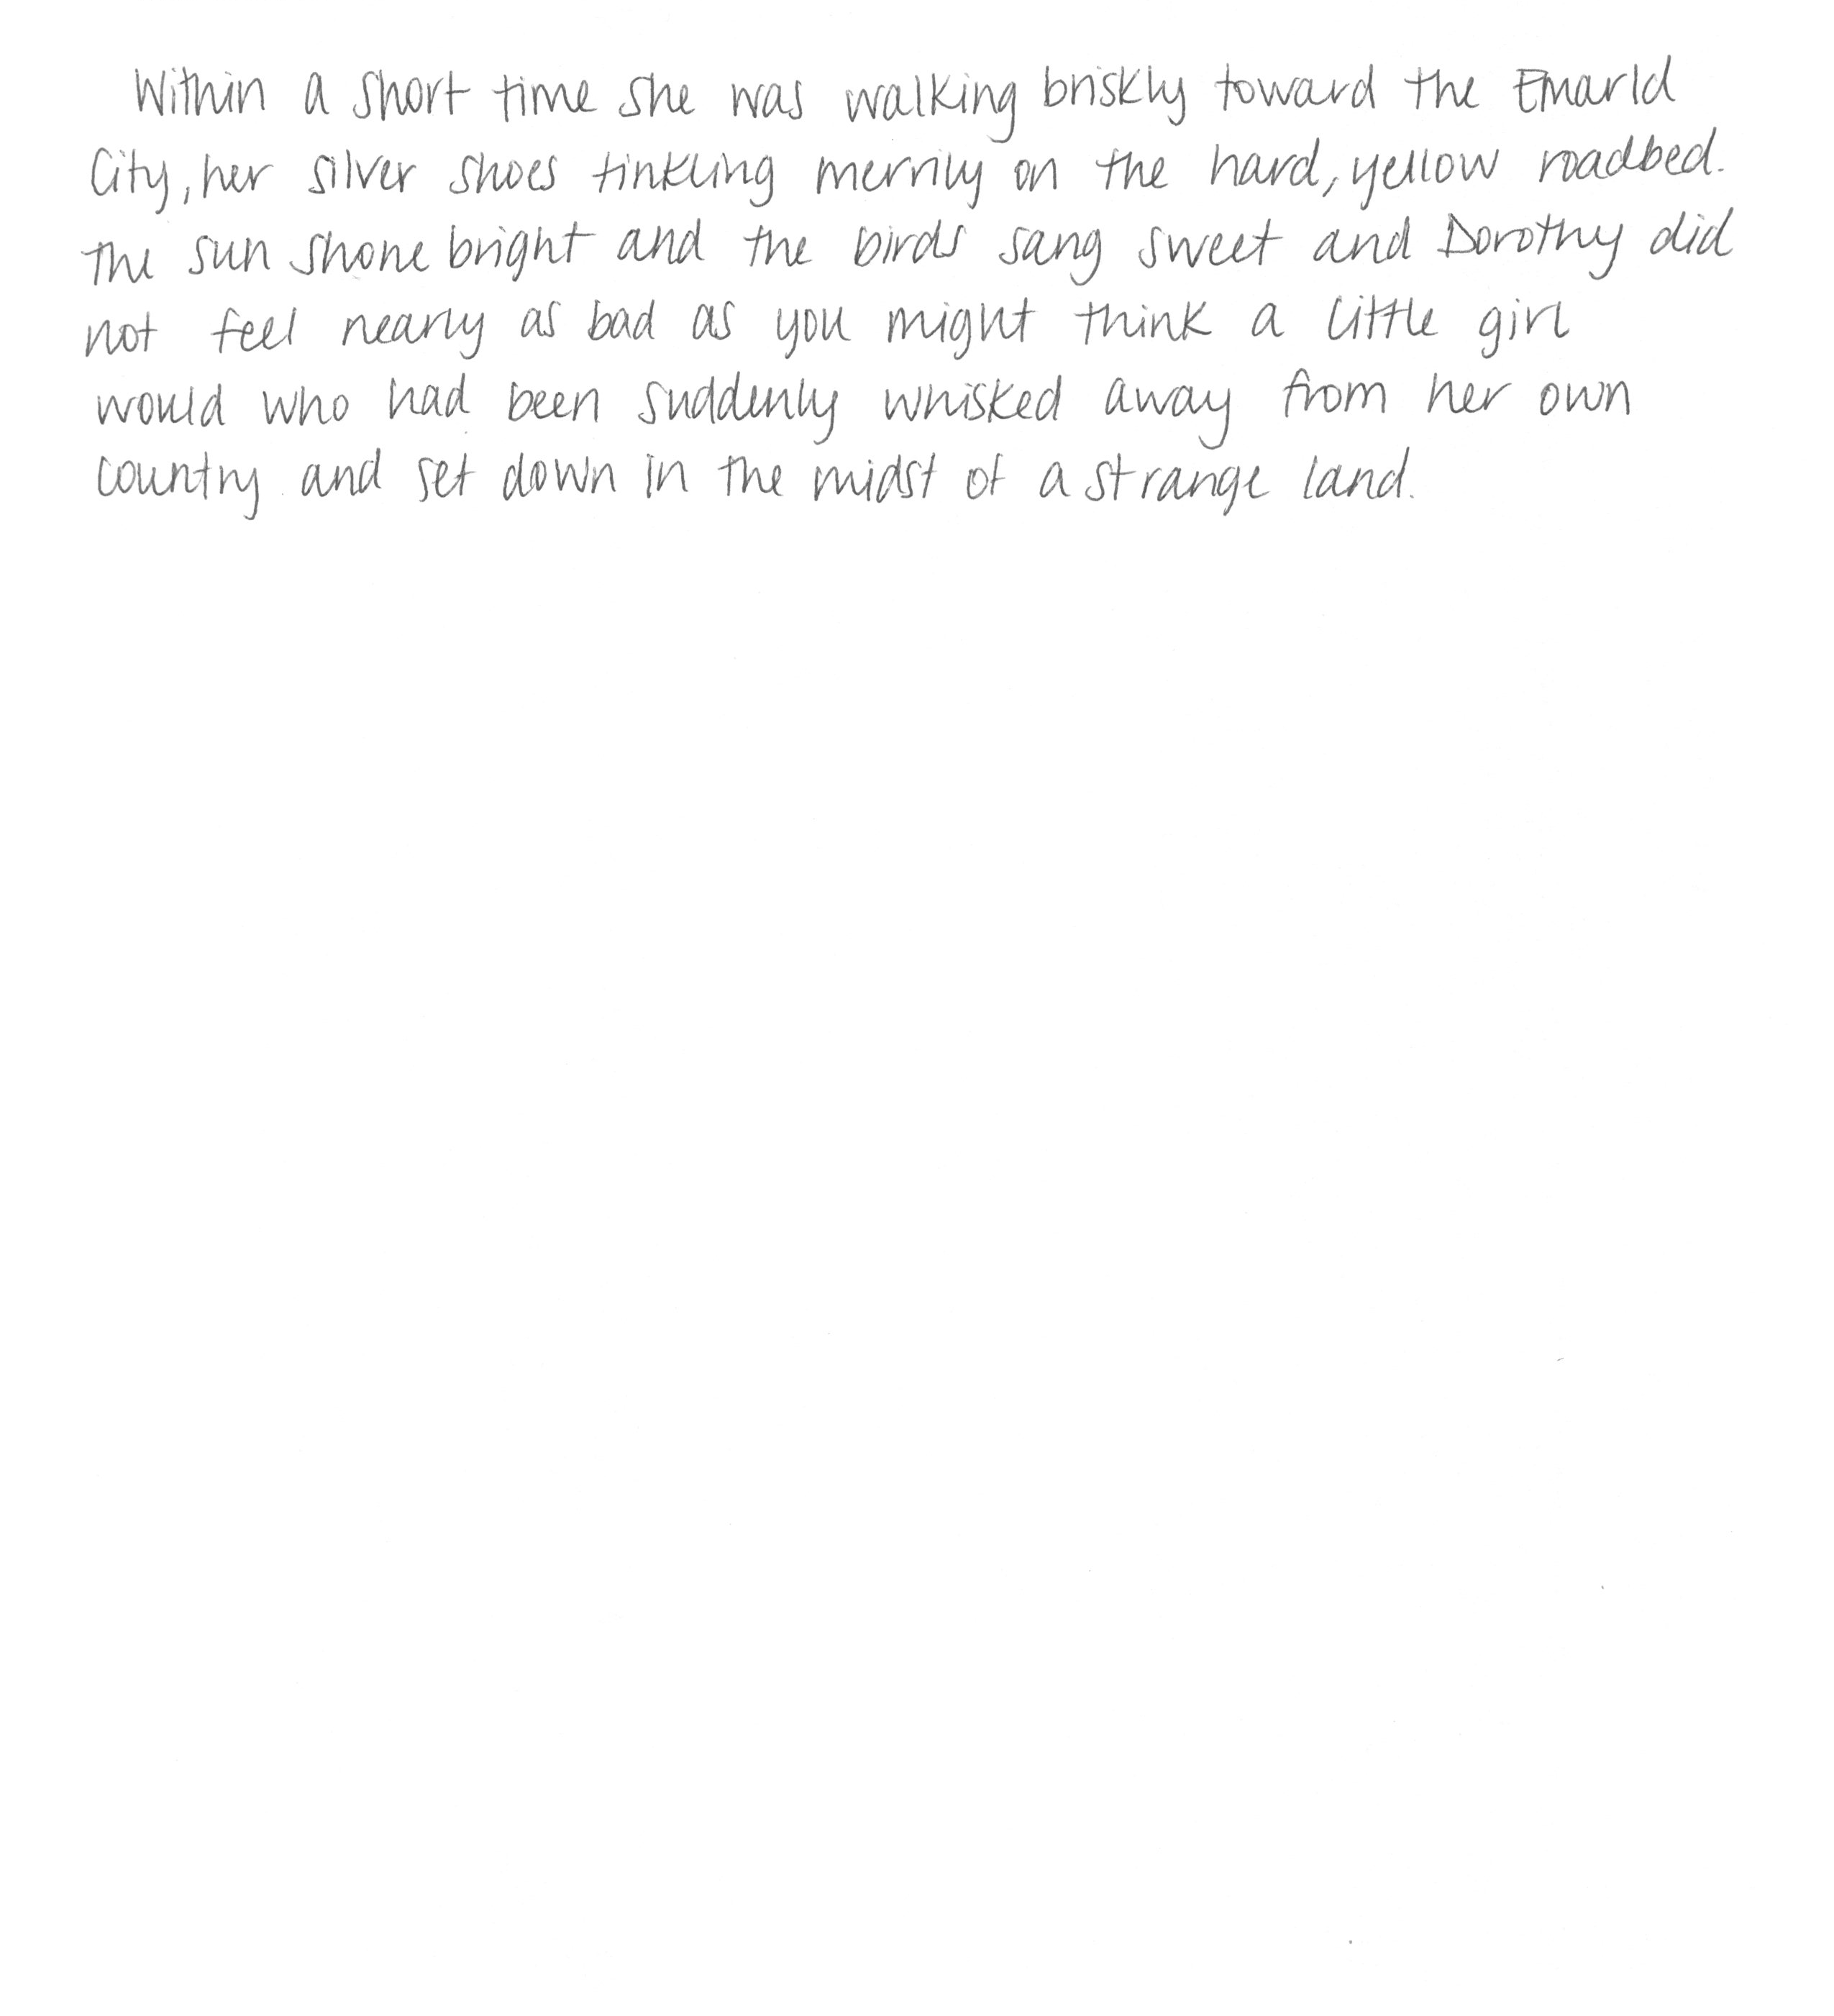 Within a short time she was walking briskly toward the Emarld
City, her silver shoes tinkling merrily on the hard, yellow roadbed.
The sun shone bright and the birds sang sweet and Dorothy did
not feel nearly as bad as you might think a little girl
would who had been suddenly whisked away from her own
country and set down in the midst of a strange land.